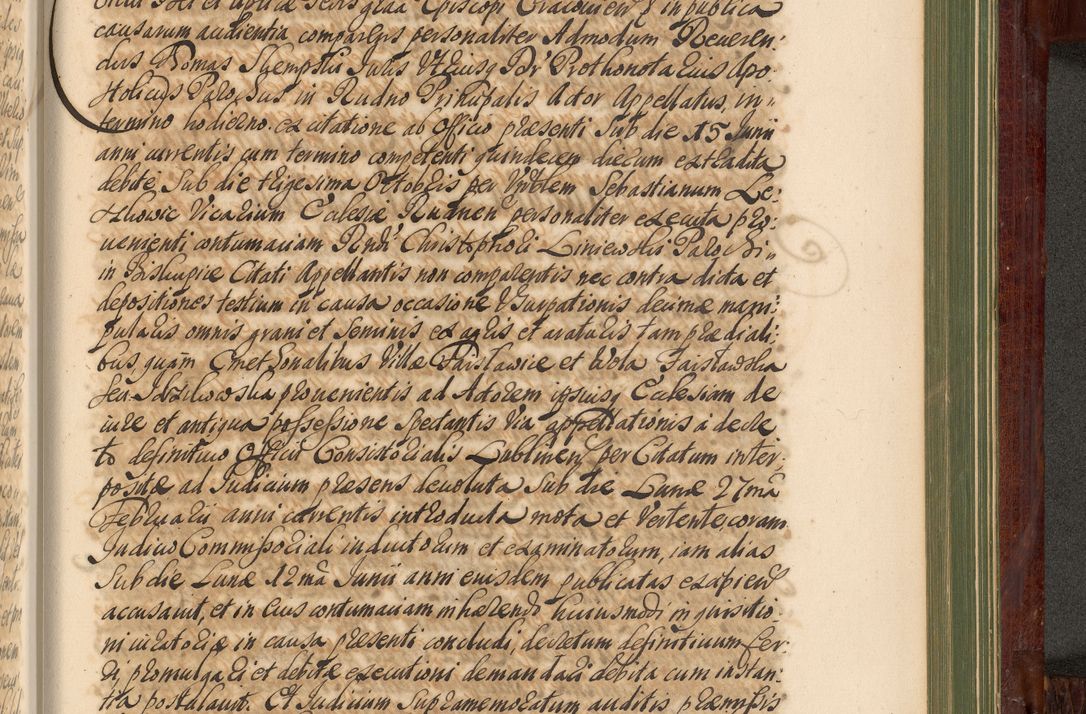 causarum audientia comparens personaliter Admodum Reveren:
dus Thomas Skempski Juris Utriusq Dr Prothonotarius Apo:
stolicus Parochus in Rudno Principalis Actor Appellatus, in
termino hodierno ex citatione ab officio præsenti sub die 15 Junii
anni currentis cum termino competenti quindecem dierum extradita
debite, sub die trigesima Octobris per Vnblem Sebastianum Le:
Vicarium Ecclesiæ Rudnen personaliter executa pro:
venienti contumaciam Rndi Christophori Liniewski Parochi
in Biskupice Citati Appellantis non comparentis nec contra dicta et
depositiones testium in causa occasione Usurpationis decimæ mani:
pularis omnis grani et seminis ex agris et araturis tam prædiali:
bus, quam Cmetonalibus Villæ Fairsławice et Wola Fairsławska
seu provenientis ad Actorem ipsiusq Ecclesiam de
iure et antiqua possessione spectantis Via appellationis a decre
to definitivo Officii Consistorialis Lublinen per Citatum inter:
positæ ad Judicium præsens devoluta sub die Lunæ 27mâ
Februarii anni currentis introducta mota et Vertente, coram
Judicio Commissoriali inductorum et examinatorum, iam alias
sub die Lunæ 12mâ Junii anni eiusdem publicatas excipien
accusavit, et in eius contumaciam inhærendo huiusmodi inquisitio
ni iuratoriæ in causa præsenti concludi, decretum definitivum fer:
ri, promulgari et debitæ executioni demandari debita cum instan:
tia postulavit. Et Judicium supramemoratum auditis præmissis